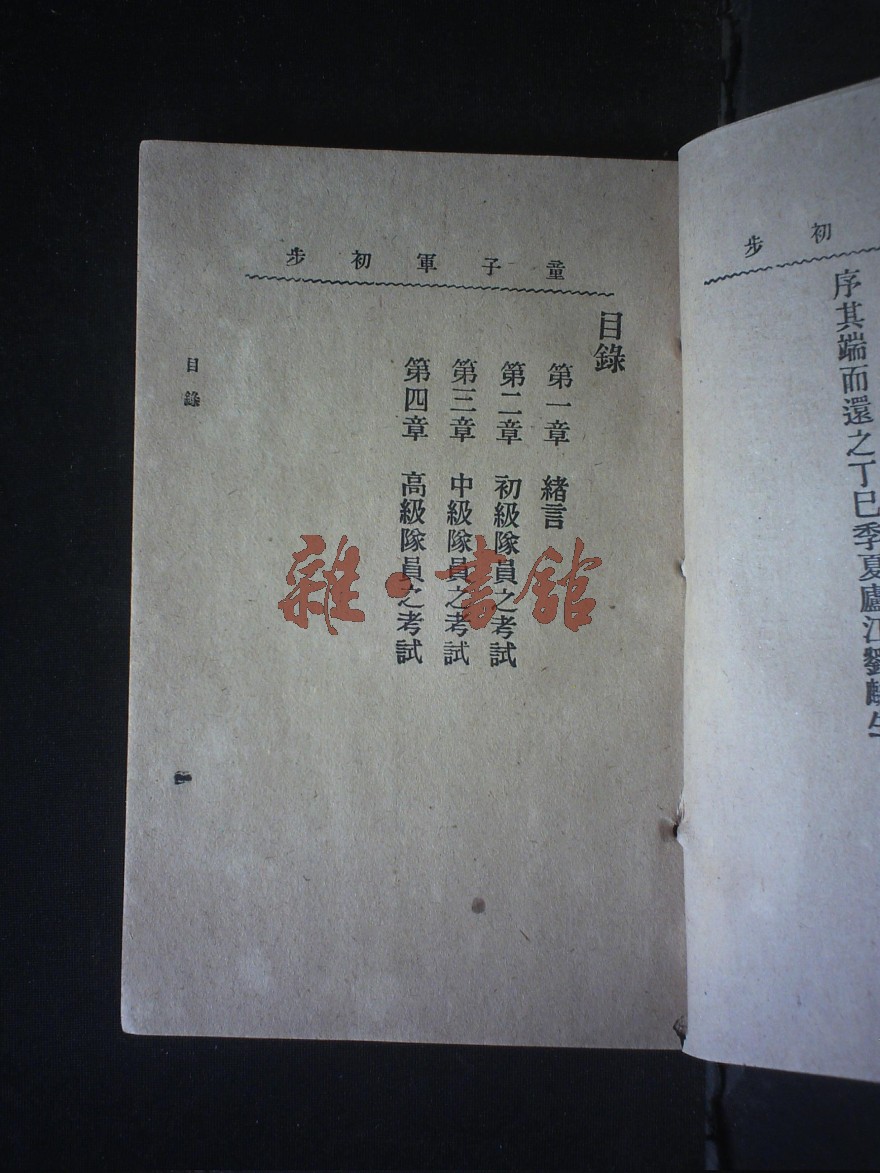 初步
序其端而還之丁巳季夏廬江劉麟生
童子軍初步
目錄
第一章 緒言
第二章 初級隊員之考試
第三章 中級隊員之考試
第四章 高級隊員之考試
目錄
一
雜·書館